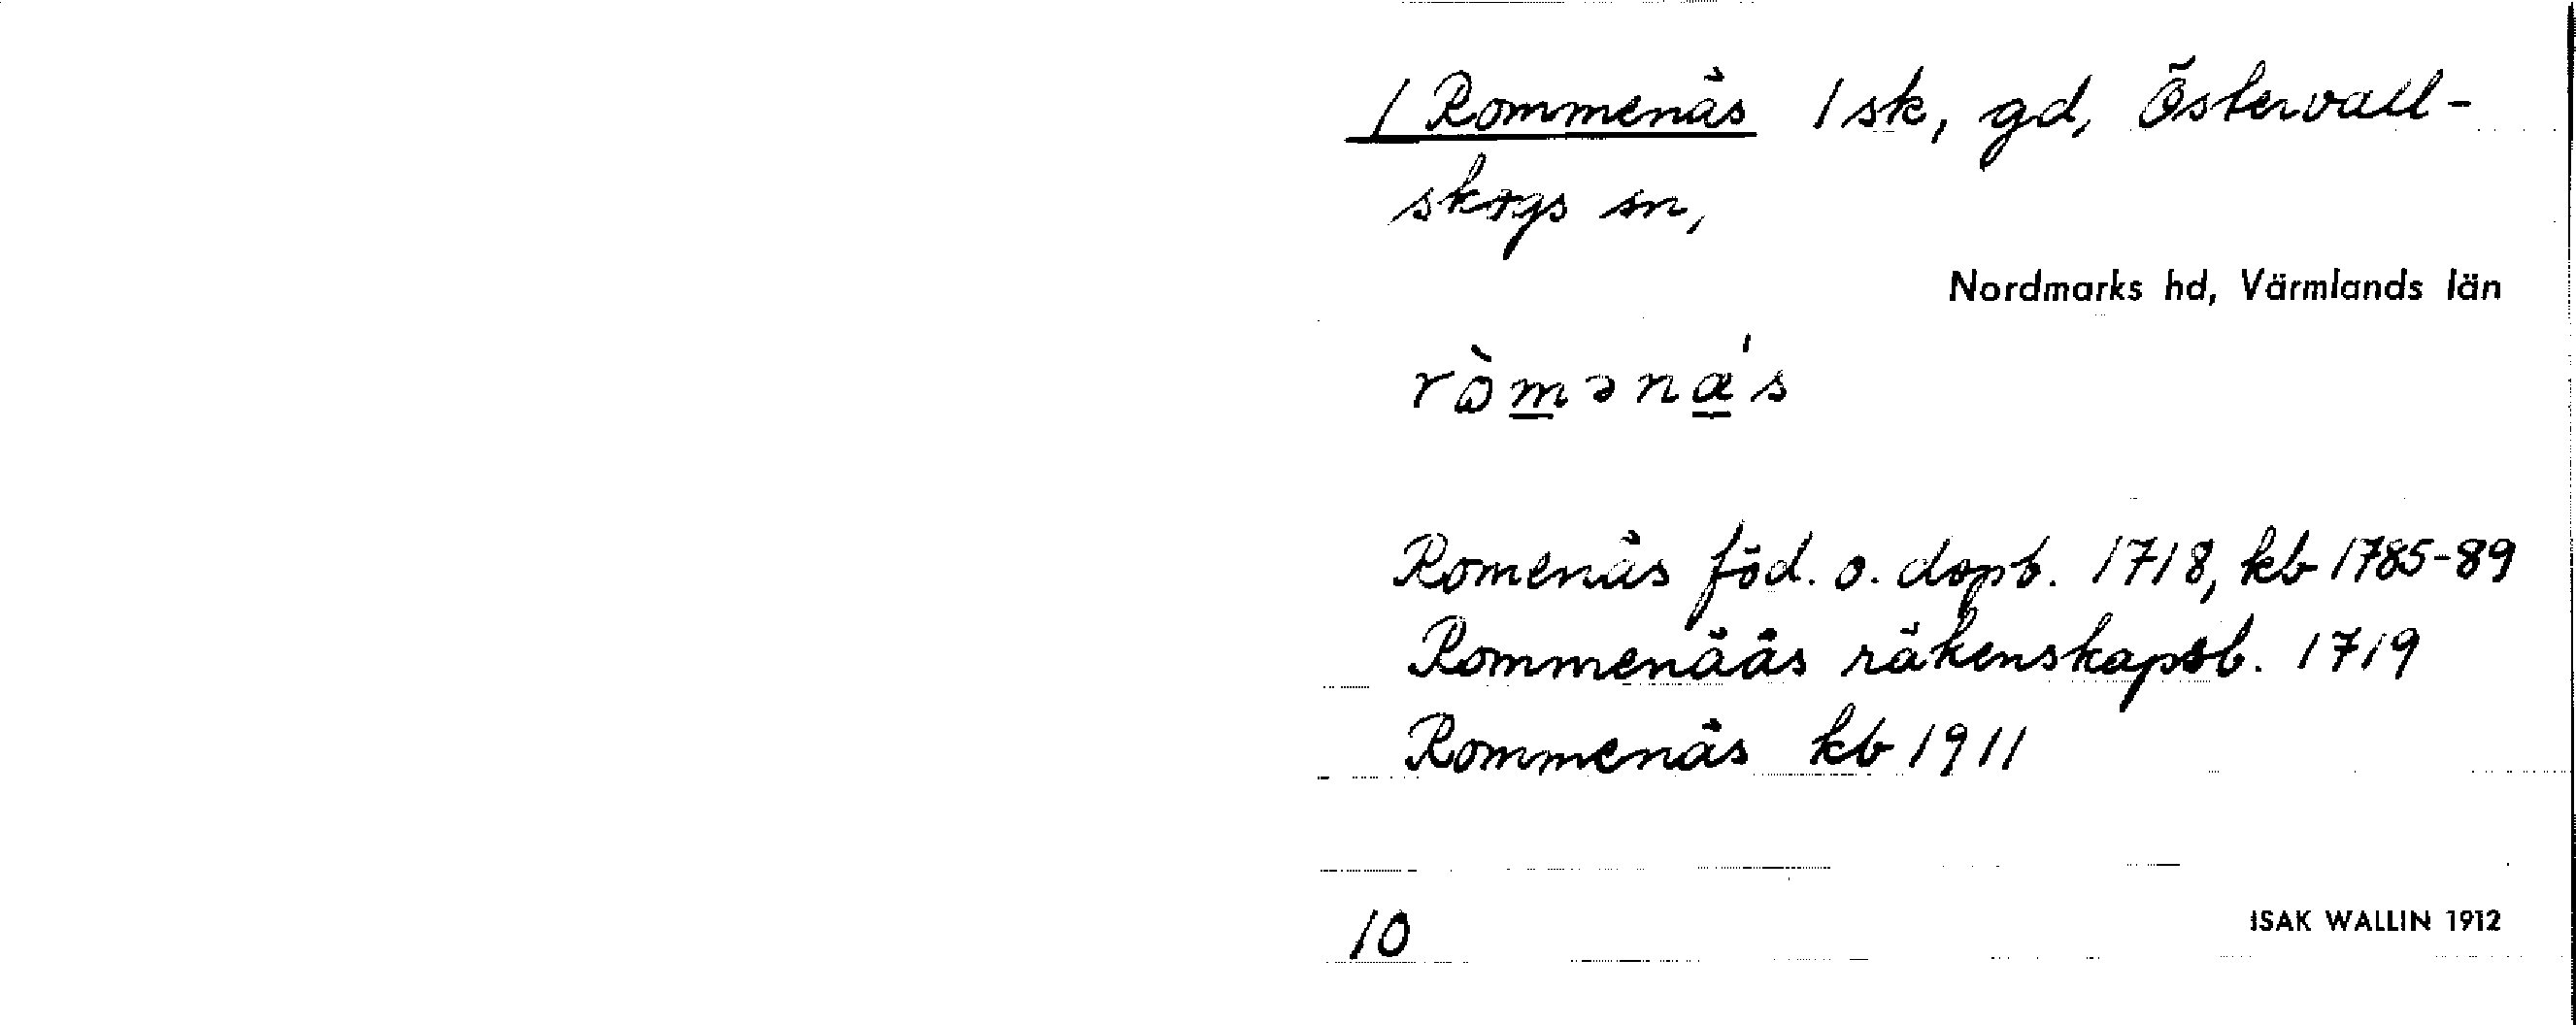 1 Rommenäs 1 sk, gd, Östervall-
skogs sn,
Nordmarks hd, Värmlands län
ròmənä's
Romenäs föd. o. dopb. 1718, kb 1785-89
Rommenääs räkenskapsb. 1719
Rommenäs kb 1911
10
ISAK WALLIN 1912